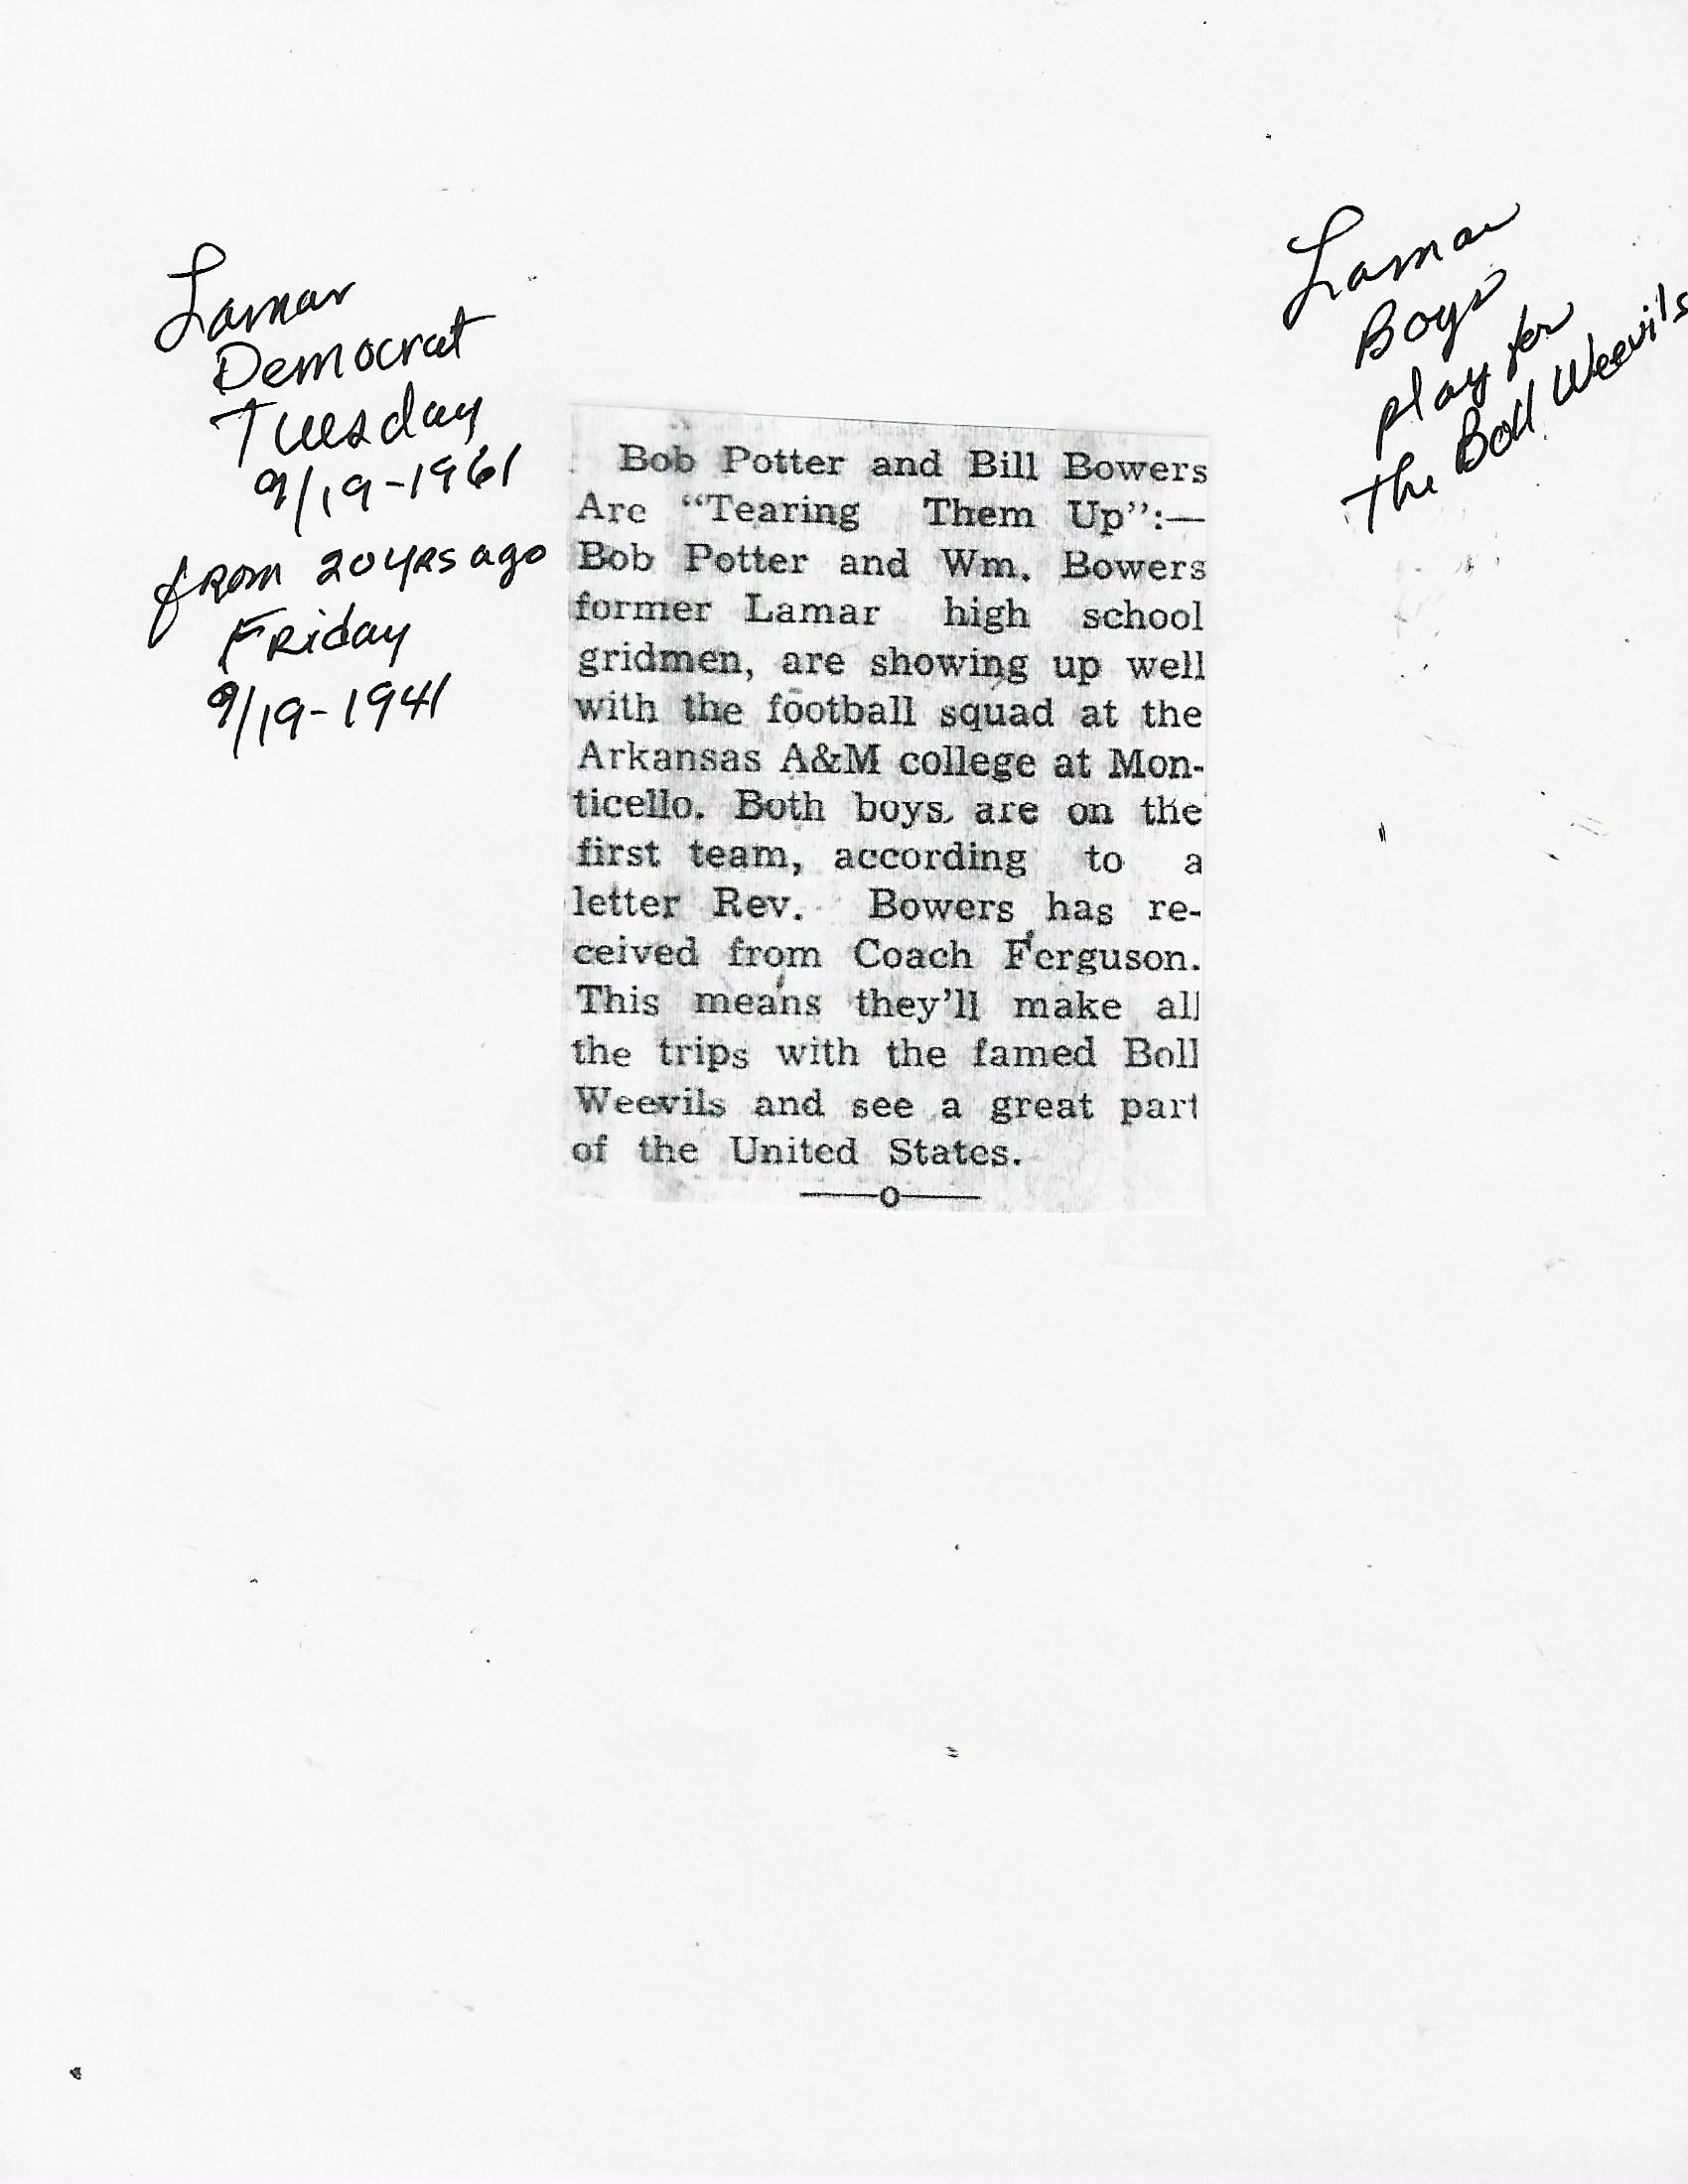 Lamar
Democrat
Tuesday
9/19-1961
from 20 yrs ago
Friday
9/19-1941
Lamar
Boys
play for
The Boll Weevils
Bob Potter and Bill Bowers
Are “Tearing Them Up”:—
Bob Potter and Wm. Bowers
former Lamar high school
gridmen, are showing up well
with the football squad at the
Arkansas A&M college at Mon-
ticello. Both boys are on the
first team, according to a
letter Rev. Bowers has re-
ceived from Coach Ferguson.
This means they’ll make all
the trips with the famed Boll
Weevils and see a great part
of the United States.
——o——